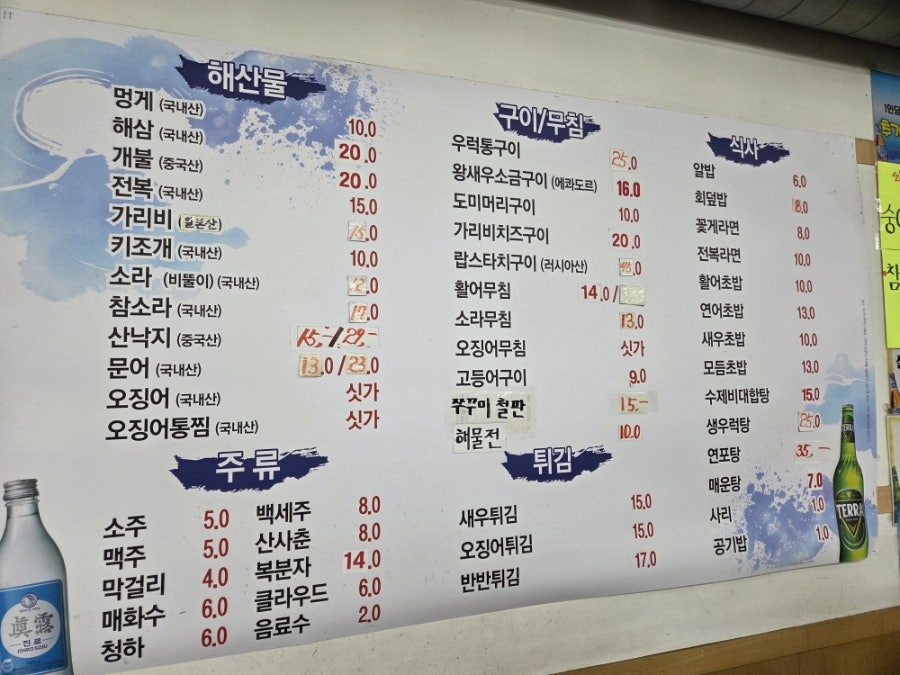 해산물
멍게 (국내산) 10.0
해삼 (국내산) 20.0
개불 (중국산) 20.0
전복 (국내산) 15.0
가리비 (일본산) 15.0
키조개 (국내산) 10.0
소라 (비뚤이) (국내산) 12.0
참소라 (국내산) 17.0
산낙지 (중국산) 15,-/29,-
문어 (국내산) 13.0/23.0
오징어 (국내산) 싯가
오징어통찜 (국내산) 싯가
구이/무침
우럭통구이 25.0
왕새우소금구이 (에콰도르) 16.0
도미머리구이 10.0
가리비치즈구이 20.0
랍스타치구이 (러시아산)
활어무침 14.0/
소라무침 13.0
오징어무침 싯가
고등어구이 9.0
쭈꾸미 철판 15.-
해물전 10.0
식사
알밥 6.0
회덮밥 8.0
꽃게라면 8.0
전복라면 10.0
활어초밥 10.0
연어초밥 13.0
새우초밥 10.0
모듬초밥 13.0
수제비대합탕 15.0
생우럭탕 25.0
연포탕 35.-
매운탕 7.0
사리 1.0
공기밥 1.0
주류
소주 5.0
맥주 5.0
막걸리 4.0
매화수 6.0
청하 6.0
백세주 8.0
산사춘 8.0
복분자 14.0
클라우드 6.0
음료수 2.0
튀김
새우튀김 15.0
오징어튀김 15.0
반반튀김 17.0
眞露
진로
JINRO SOJU
TERRA